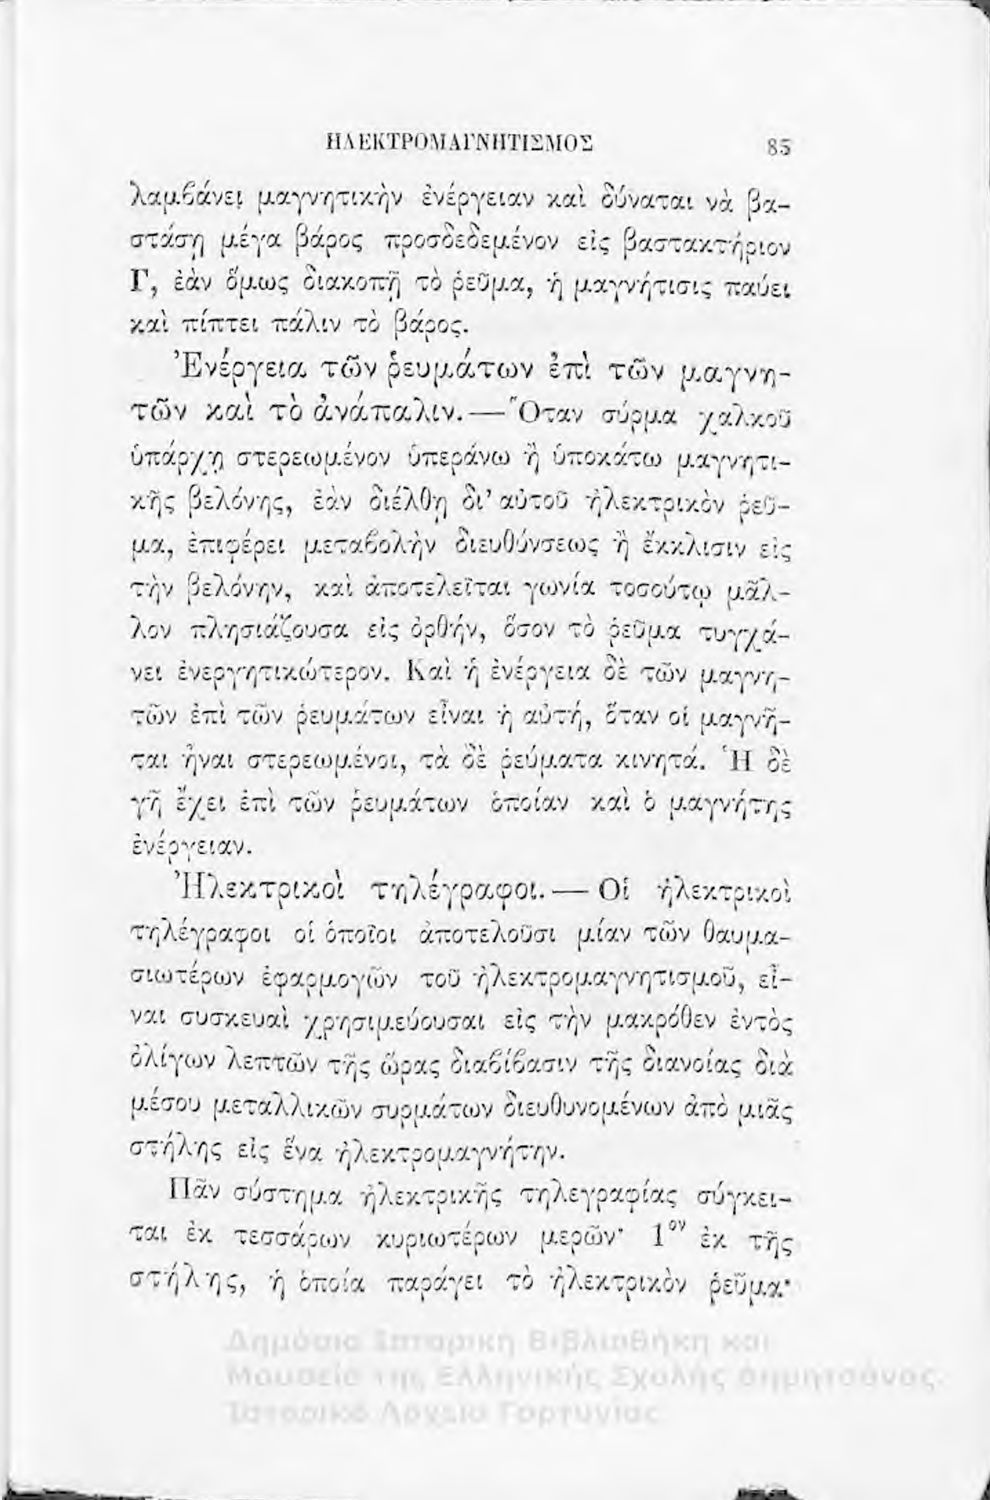 ΗΛΕΚΤΡΟΜΑΓΝΗΤΙΣΜΟΣ 85
λαμβάνει μαγνητικὴν ἐνέργειαν καὶ δύναται νὰ βα-
στάσῃ μέγα βάρος προσδεδεμένον εἰς βαστακτήριον
Γ, ἐὰν ὅμως διακοπῇ τὸ ῥεῦμα, ἡ μαγνήτισις παύει
καὶ πίπτει πάλιν τὸ βάρος.
Ἐνέργεια τῶν ῥευμάτων ἐπὶ τῶν μαγνη-
τῶν καὶ τὸ ἀνάπαλιν. — Ὅταν σύρμα χαλκοῦ
ὑπάρχῃ στερεωμένον ὑπεράνω ἢ ὑποκάτω μαγνητι-
κῆς βελόνης, ἐὰν διέλθῃ δι’ αὐτοῦ ἠλεκτρικὸν ῥεῦ-
μα, ἐπιφέρει μεταβολὴν διευθύνσεως ἢ ἔκκλισιν εἰς
τὴν βελόνην, καὶ ἀποτελεῖται γωνία τοσούτῳ μᾶλ-
λον πλησιάζουσα εἰς ὀρθήν, ὅσον τὸ ῥεῦμα τυγχά-
νει ἐνεργητικώτερον. Καὶ ἡ ἐνέργεια δὲ τῶν μαγνη-
τῶν ἐπὶ τῶν ῥευμάτων εἶναι ἡ αὐτή, ὅταν οἱ μαγνῆ-
ται ἦναι στερεωμένοι, τὰ δὲ ῥεύματα κινητά. Ἡ δὲ
γῆ ἔχει ἐπὶ τῶν ῥευμάτων ὁποίαν καὶ ὁ μαγνήτης
ἐνέργειαν.
Ἠλεκτρικοὶ τηλέγραφοι. — Οἱ ἠλεκτρικοὶ
τηλέγραφοι οἱ ὁποῖοι ἀποτελοῦσι μίαν τῶν θαυμα-
σιωτέρων ἐφαρμογῶν τοῦ ἠλεκτρομαγνητισμοῦ, εἶ-
ναι συσκευαὶ χρησιμεύουσαι εἰς τὴν μακρόθεν ἐντὸς
ὀλίγων λεπτῶν τῆς ὥρας διαβίβασιν τῆς διανοίας διὰ
μέσου μεταλλικῶν συρμάτων διευθυνομένων ἀπὸ μιᾶς
στήλης εἰς ἕνα ἠλεκτρομαγνήτην.
Πᾶν σύστημα ἠλεκτρικῆς τηλεγραφίας σύγκει-
ται ἐκ τεσσάρων κυριωτέρων μερῶν· 1ον ἐκ τῆς
στήλης, ἡ ὁποία παράγει τὸ ἠλεκτρικὸν ῥεῦμα·
Δημόσια Ιστορική Βιβλιοθήκη και
Μουσείο της Ελληνικής Σχολής Δημητσάνας.
Ιστορικό Αρχείο Γορτυνίας